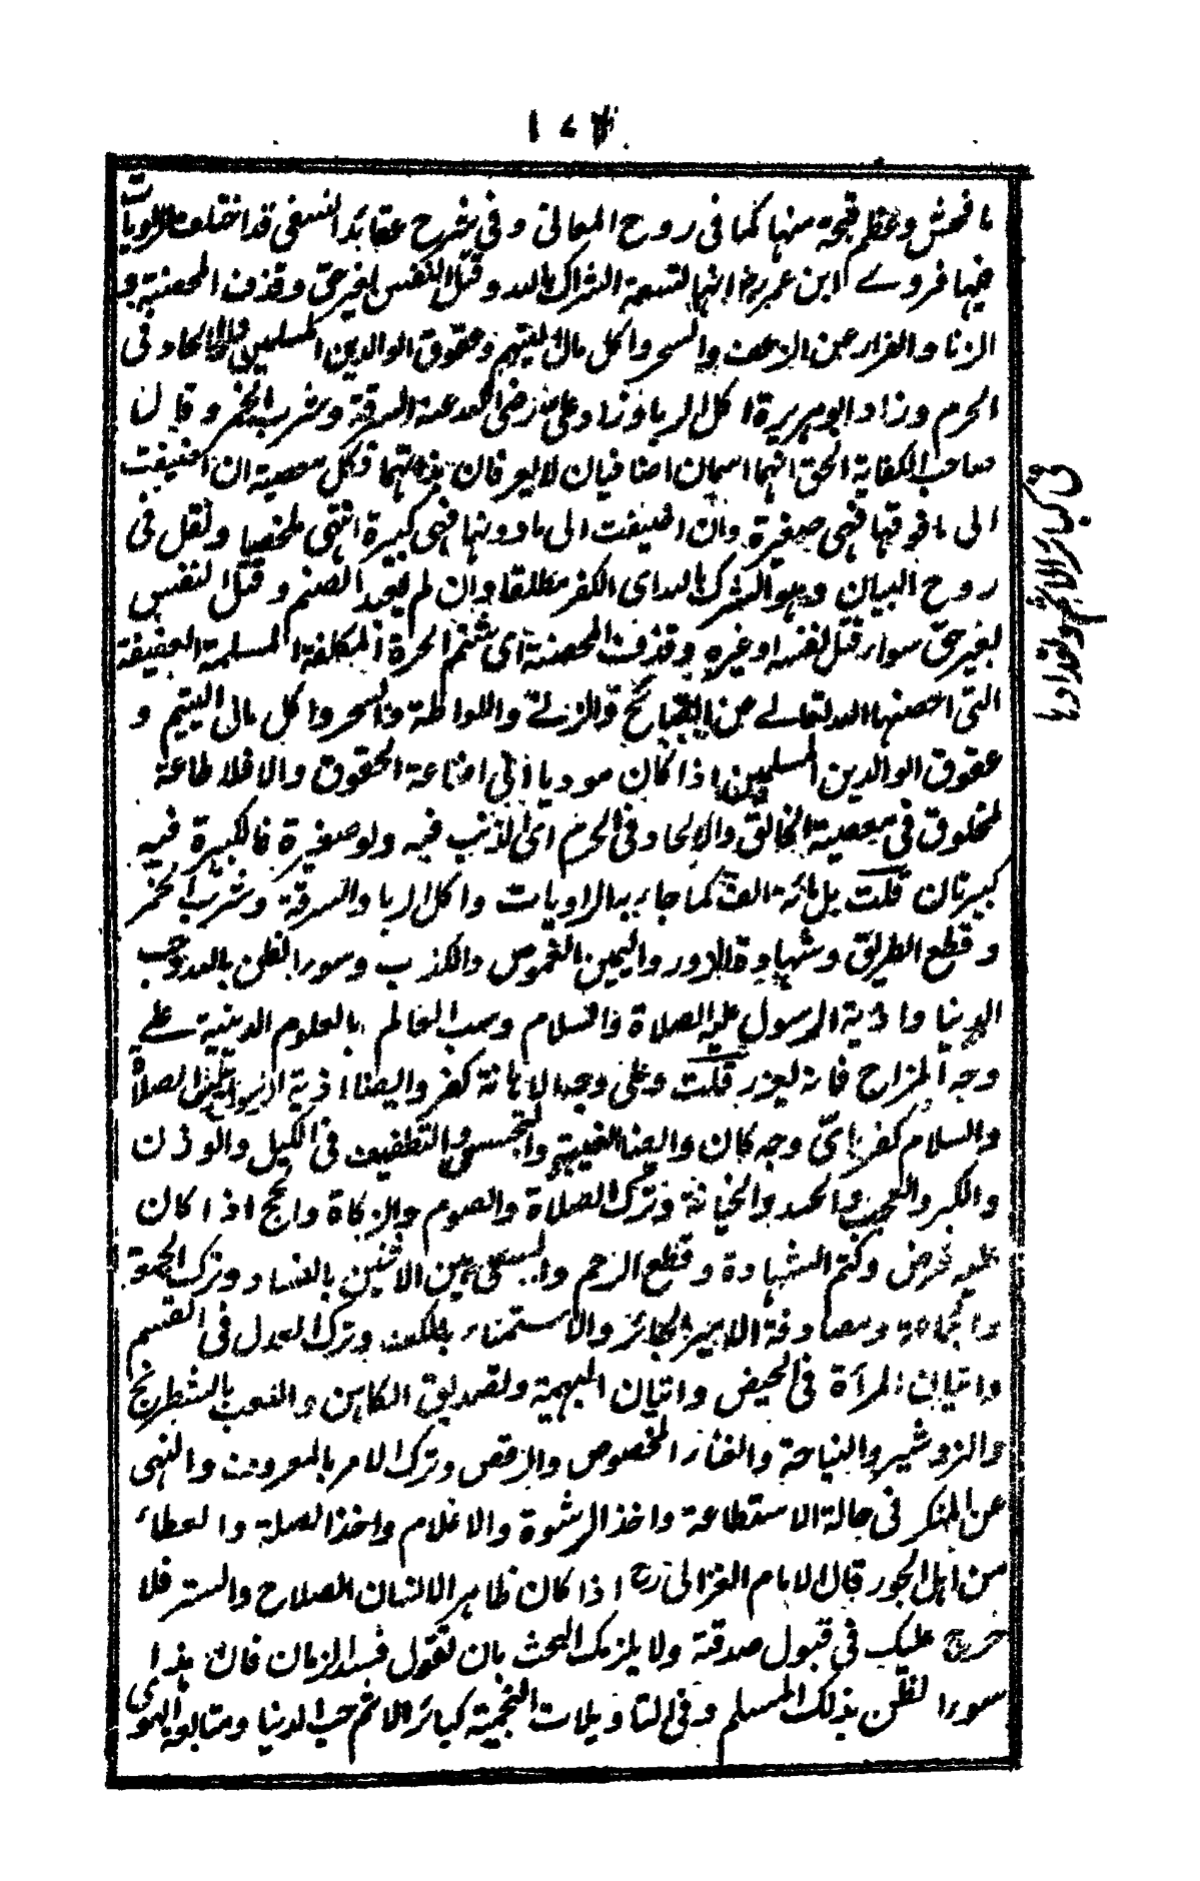 ١٨٧
ما فحش وعظم قبحه منها كما فى روح المعانى وفى شرح عقائد النسفى قد اختلف الروايات
فيها فروے ابن عمر رض انها تسعة الشراك بالله وقتل النفس بغير حق وقذف المحصنة و
الزنا والفرار عن الزحف والسحر واكل مال اليتيم وعقوق الوالدين المسلمين والالحاد فى
الحرم وزاد ابو هريرة اكل الربا وزاد على رضى الله عنه السرقة وشرب الخمر وقال
صاحب الكفاية الحق انهما اسمان اضافيان لا يعرفان بذاتهما فكل معصية ان اضيفت
الى ما فوقها فهى صغيرة وان اضيفت الى ما دونها فهى كبيرة انتهى ملخصا ونقل فى
روح البيان وهو الشرك بالله اى الكفر مطلقا وان لم يعبد الصنم وقتل النفس
بغير حق سواء قتل نفسه او غيره وقذف المحصنة اى شتم الحرة المكلفة المسلمة العفيفة
التى احصنها الله تعالے عن القبائح والزنے واللواطة والسحر واكل مال اليتيم و
عقوق الوالدين المسلمين اذا كان موديا فى اضاعة الحقوق والا فلا طاعة
لمخلوق فى معصية الخالق والالحاد فى الحرم اى الذنب فيه ولو صغيرة فالكبيرة فيه
كبيرتان قلت بل مائة الف كما جاء به الراويات واكل الربا والسرقة وشرب الخمر
وقطع الطريق وشهادة الزور واليمين الغموص والكذب وسوء الظن بالله وحب
الدنيا واذية الرسول عليه الصلاة والسلام وسب العالم بالعلوم الدينية علے
وجه المزاح فانه يعزر قلت وعلى وجه الاهانة كفر وايضا اذية الرسول عليه الصلاة
والسلام كفر باىّ وجه كان وايضا الغيبة والتجسس والتطفيف فى الكيل والوزن
والكبر والعجب والحسد والخيانة وترك الصلاة والصوم والزكاة والحج اذا كان
عليه فرض وكتم الشهادة وقطع الرحم والسعى بين الاثنين بالفساد وترك الجمعة
والجماعة ومصادفة الامير الجائز والاستمناء بالكف وترك العدل فى القسم
واتيان المرأة فى الحيض واتيان البهيمة وتصديق الكاهن واللعب بالشطرنج
والنردشير والنياحة والغناء المخصوص والرقص وترك الامر بالمعروف والنهى
عن المنكر فى حالة الاستطاعة واخذ الرشوة والاغلام واخذ الصلة والعطاء
من اهل الجور قال الامام الغزالى رح اذا كان ظاهر الانسان الصلاح والستر فلا
حرج عليك فى قبول صدقة ولا يلزمك البحث بان تقول فسد الزمان فان هذا
سوء الظن بذلك المسلم وفى التاويلات النجمية كبائر الاثم حب الدنيا ومتابعة الهوى
فى كبائر الاثم وتعدادها